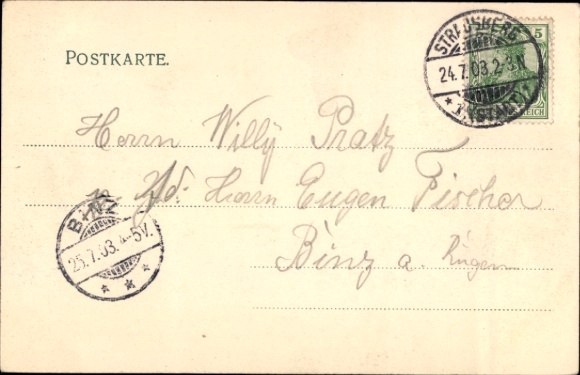 POSTKARTE.
STRAUSBERG
24.7.03.2-3N.
* (STADT) *
5
REICH
Herrn Willy Pratz
Adr. Herrn Eugen Fischer
Binz a. Rügen
BINZ
25.7.03. 4-5V.
* * *